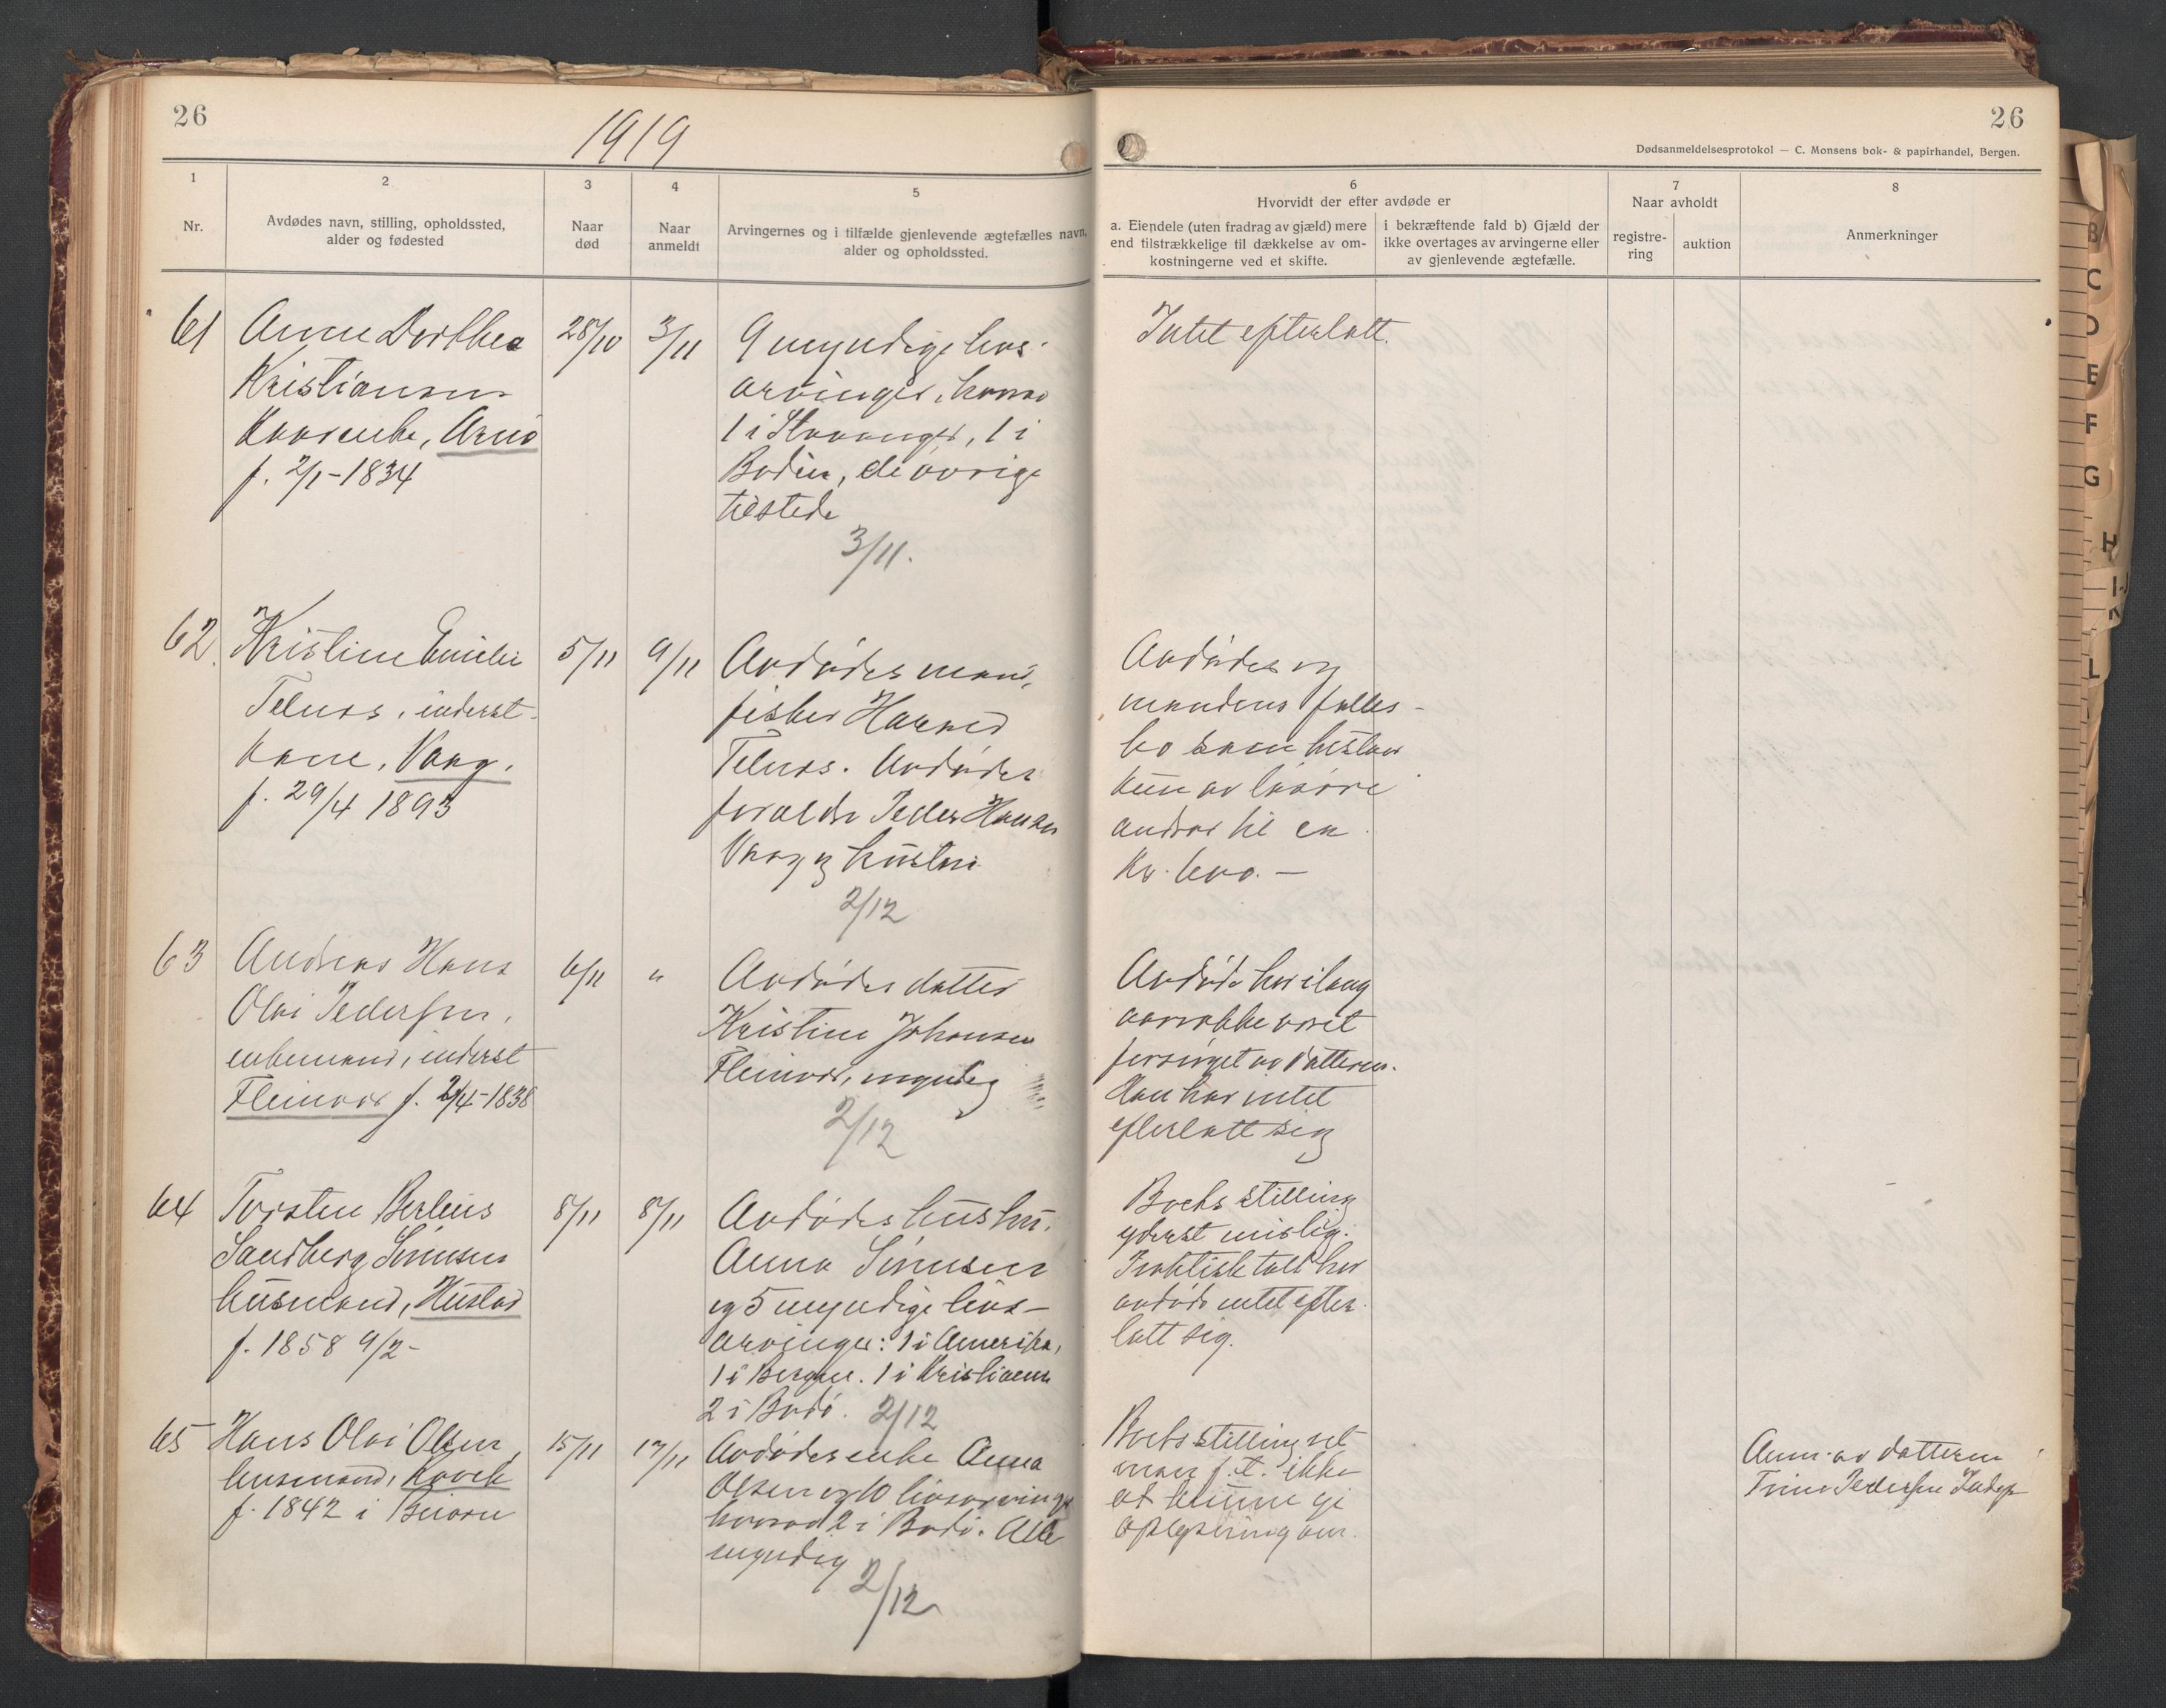 26
1919
26
Dødsanmeldelsesprotokol — C. Monsens bok- & papirhandel, Bergen.
1
Nr.
2
Avdødes navn, stilling, opholdssted,
alder og fødested
3
Naar
død
4
Naar
anmeldt
5
Arvingernes og i tilfælde gjenlevende ægtefælles navn,
alder og opholdssted.
6
Hvorvidt der efter avdøde er
a. Eiendele (uten fradrag av gjæld) mere
end tilstrækkelige til dækkelse av om-
kostningerne ved et skifte.
i bekræftende fald b) Gjæld der
ikke overtages av arvingerne eller
av gjenlevende ægtefælle.
7
Naar avholdt
registre-
ring
auktion
8
Anmerkninger
61
Anne Dorthea
Kristiansen
Kaarenke, Arnø
f. 2/1-1834
28/10
3/11
9 myndige livs-
arvinger, hvorav
1 i Stavanger, 1 i
Bodin, de øvrige
tilstede
3/11.
Intet efterlatt.
62.
Kristine Emelie
Telnes, inderst-
kone, Vaag.
f. 29/4 1893
5/11
9/11
Avdødes mand,
fisker Harald
Telnes. Avdødes
foreldre Peder Hansen
Vaag og hustru
2/12
Avdødes og
mandens fælles-
bo som bestaar
kun av løsøre
andrar til ca
Kr. 600.—
63
Andreas Hans
Olai Pedersen,
enkemand, inderst
Fleinvær f. 2/4-1838
6/11
"
Avdødes datter
Kristine Johansen
Fleinvær, myndig
2/12
Avdøde har i lang
aarrække været
forsørget av datteren.
Han har intet
efterlatt sig
64
Torsten Berleus
Sandberg Simonsen
husmand, Hustad
f. 1858 9/2-
8/11
8/11
Avdødes hustru,
Anna Simonsen
og 5 myndige livs-
arvinger: 1 i Amerika,
1 i Bergen. 1 i Kristiania
2 i Bodø. 2/12
Boets stilling
yderst mislig.
Praktisk talt har
avdøde intet efter-
latt sig.
65
Hans Olai Olsen,
husmand,
f. 1842 i Beiarn
15/11
17/11
Avdødes enke Anna
Olsen og 10 livsarvinger
hvorav 2 i Bodø. Alle
myndig
2/12
Boets stilling vet
man f.t. ikke
at kunne gi
oplysning om.
Anm. av datteren
Trine Pedersen
B
C
D
E
F
G
H
L